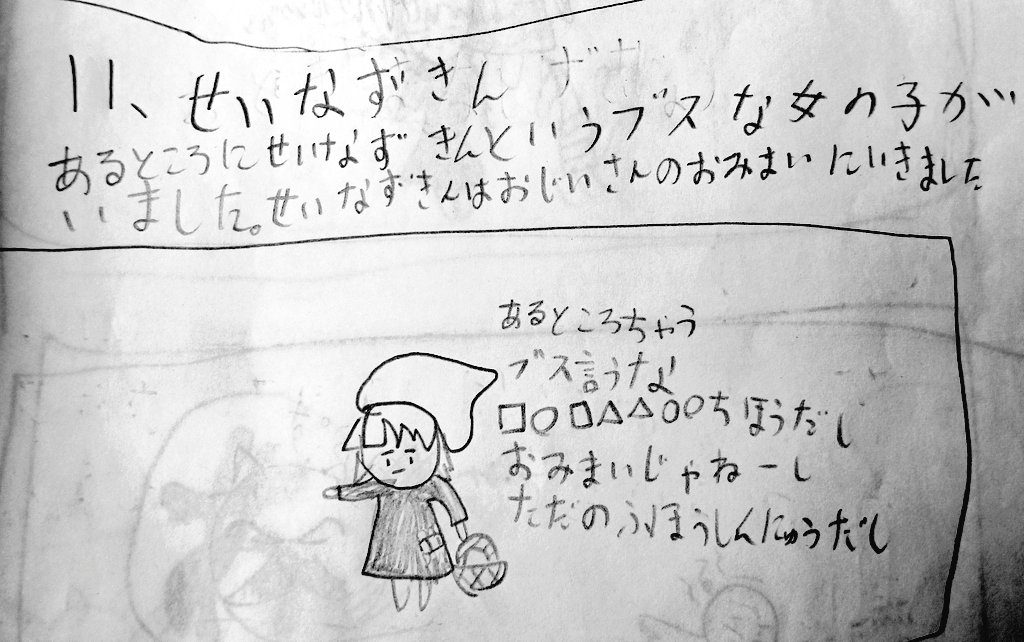 11、せいなずきん
あるところにせいなずきんというブスな女の子が
いました。せいなずきんはおじいさんのおみまいにいきました
あるところちゃう
ブス言うな
□○□△△○○ちほうだし
おみまいじゃねーし
ただのふほうしんにゅうだし